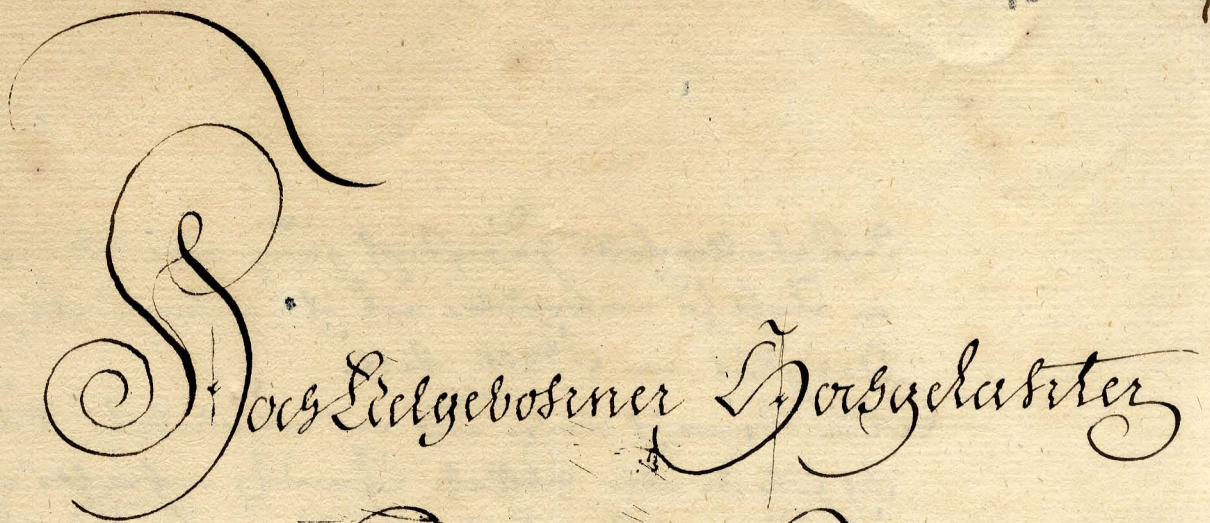 HochEdelgebohrner Hochgelahrter